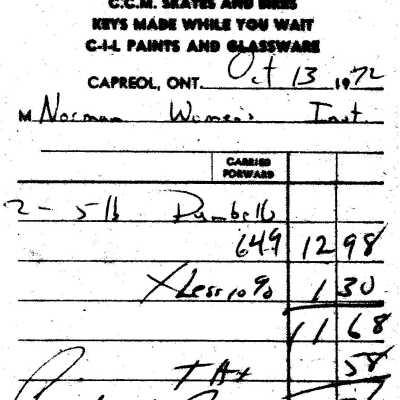 C.C.M. SKATES AND BIKES
KEYS MADE WHILE YOU WAIT
C-I-L PAINTS AND GLASSWARE
CAPREOL, ONT. Oct 13 1972
M Norman Women's Inst.
CARRIED
FORWARD
2 - 5 lb Dumbells
649 12 98
Less 10% 1 30
11 68
TAx 58